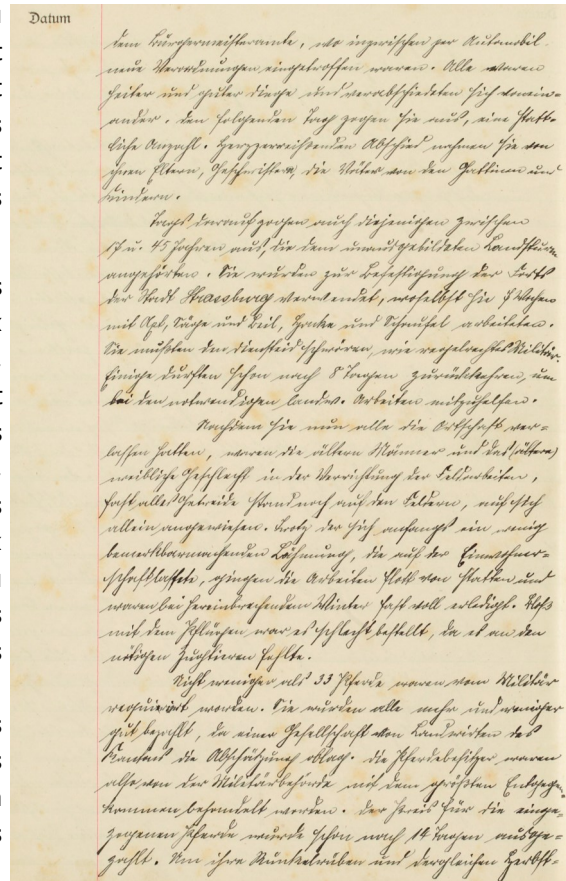 Datum
dem Bürgermeisteramte, wo inzwischen per Automobil
neue Verordnungen eingetroffen waren. Alle waren
heiter und guter Dinge und verabschiedeten sich vonein-
ander. Den folgenden Tag zogen sie aus, eine statt-
liche Anzahl. Herzzerreißenden Abschied nahmen sie von
ihren Eltern, Geschwistern, die Väter von den Gattinen und
Kindern.
Tags darauf zogen auch diejenigen zwischen
u. 45 Jahren aus, die dem unausgebildeten Landsturm
angehörten. Sie wurden zur Befestigung der Forts
der Stadt Strassburg verwendet, woselbst sie Wochen
mit Axt, Säge und Beil, Hacke und Schaufel arbeiteten.
Sie mußten den Diensteid schwören, wie regelrechtes Militär.
Einige durften schon nach 8 Tagen zurückkehren, um
bei den notwendigen landw. Arbeiten mitzuhelfen.
Nachdem sie nun alle die Ortschaft ver-
lassen hatten, waren die ältern Männer und das (ältere)
weibliche Geschlecht in der Verrichtung der Feldarbeiten,
fast alles Getreide stand noch auf den Feldern, auf sich
allein angewiesen. Trotz der sich anfangs ein wenig
bemerkbarmachenden Lähmung, die auf der Einwohner-
schaft lastete, gingen die Arbeiten flott von statten und
waren bei hereinbrechendem Winter fast voll erledigt. Bloß
mit dem Pflügen war es schlecht bestellt, da es an den
nötigen Zugtieren fehlte.
Nicht weniger als 33 Pferde waren vom Militär
requiriert worden. Sie wurden alle mehr und weniger
gut bezahlt, da einer Gesellschaft von Landwirten des
Kantons die Abschätzung oblag. Die Pferdebesitzer waren
also von der Militärbehörde mit dem größten Entgegen-
kommen behandelt worden. Der Preis für die einge-
zogenen Pferde wurde schon nach 14 Tagen ausge-
zahlt. Um ihre Runkelrüben und dergleichen Herbst-